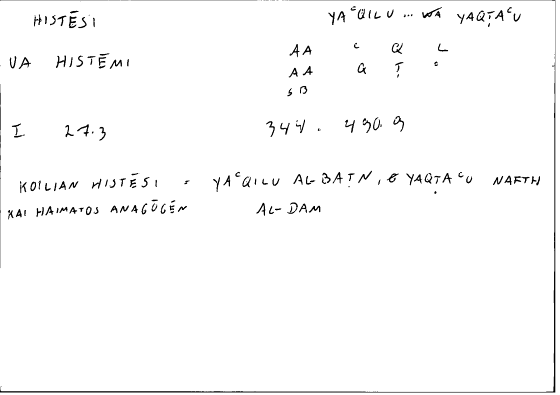 HISTĒSI YAᶜQILU ... WA YAQṬAᶜU
AA ᶜ Q L
VA HISTĒMI
AA Q Ṭ ᶜ
SB
I 27.3 344. 430.9
KOILIAN HISTĒSI = YAᶜQILU AL-BAṬN, YAQṬAᶜU NAFTH
KAI HAIMATOS ANAGŌGĒN AL-DAM